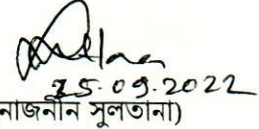 25.09.2022
নাজনীন সুলতানা)